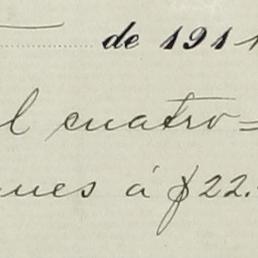 de 1911
l cuatro=
ues á $22.